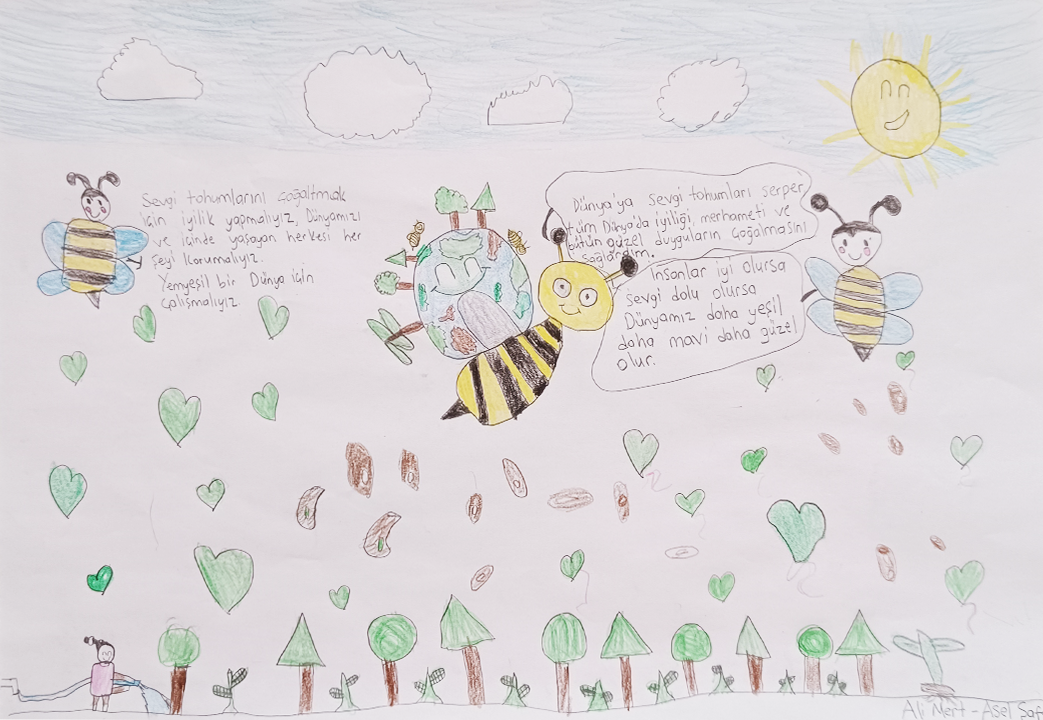 Sevgi tohumlarını çoğaltmak
için iyilik yapmalıyız. Dünyamızı
ve içinde yaşayan herkesi her
şeyi korumalıyız.
Yemyeşil bir Dünya için
çalışmalıyız.
Dünya'ya sevgi tohumları serper
tüm Dünya'da iyiliği, merhameti ve
bütün güzel duyguların çoğalmasını
sağlardım.
İnsanlar iyi olursa
sevgi dolu olursa
Dünyamız daha yeşil
daha mavi daha güzel
olur.
Ali Mert - Asel Saf